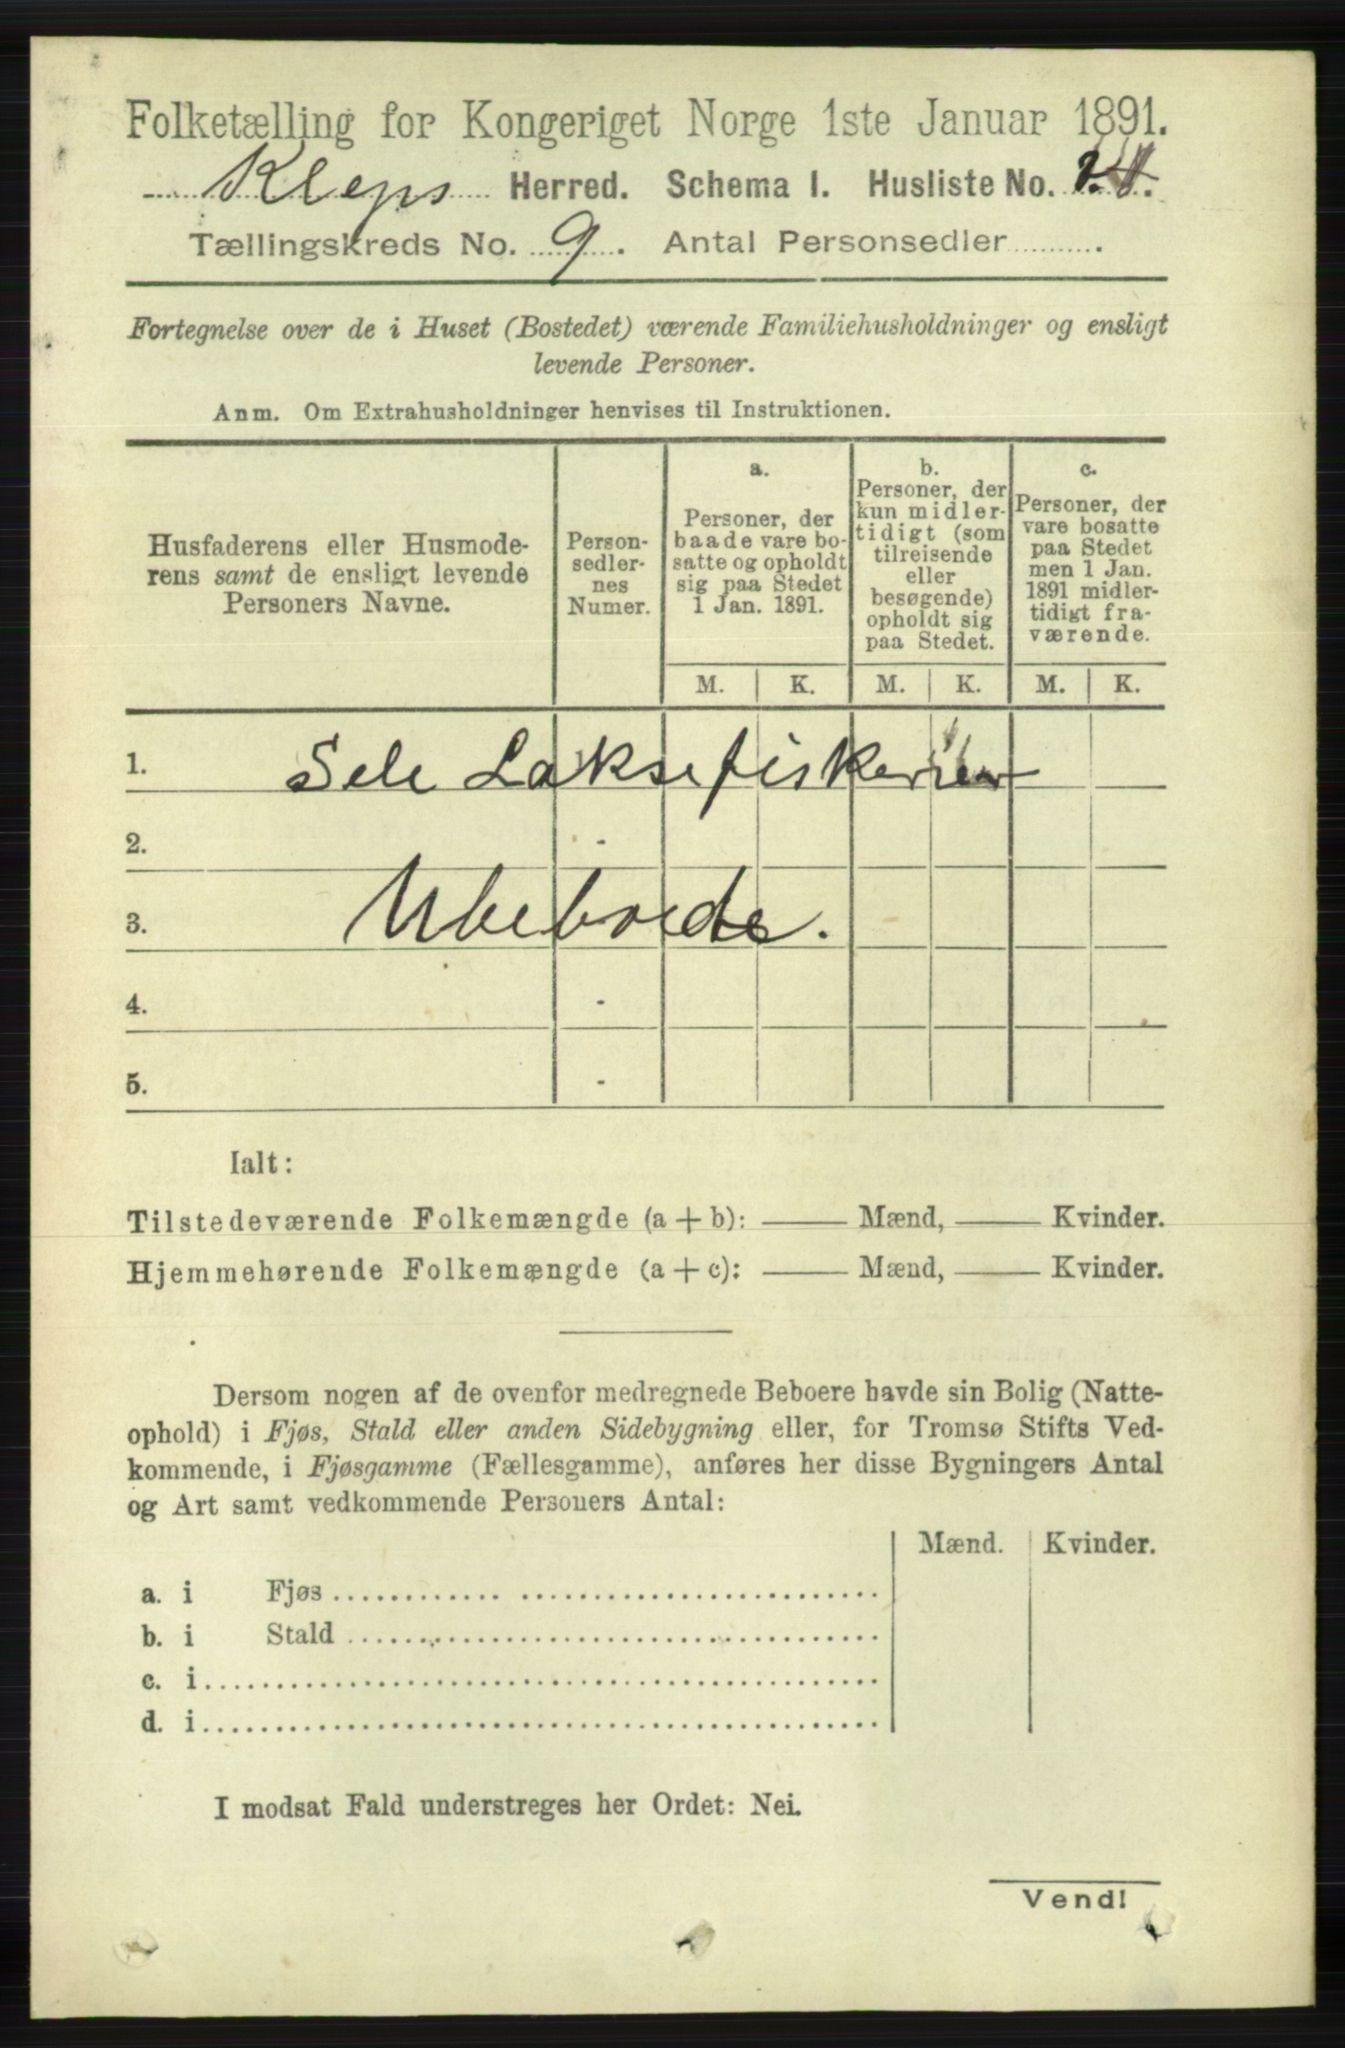 Folketælling for Kongeriget Norge 1ste Januar 1891.
Kleps Herred. Schema I. Husliste No.
Tællingskreds No. 9. Antal Personsedler .
Fortegnelse over de i Huset (Bostedet) værende Familiehusholdninger og ensligt
levende Personer.
Anm. Om Extrahusholdninger henvises til Instruktionen.
Husfaderens eller Husmode-
rens samt de ensligt levende
Personers Navne.
Person-
sedler-
nes
Numer.
a.
Personer, der
baade vare bo-
satte og opholdt
sig paa Stedet
1 Jan. 1891.
b.
Personer, der
kun midler-
tidigt (som
tilreisende
eller
besøgende)
opholdt sig
paa Stedet.
c.
Personer, der
vare bosatte
paa Stedet
men 1 Jan.
1891 midler-
tidigt fra-
værende.
M. K. M. K. M. K.
1. Sele Laksefiskerier
2. -
3. Ubeboede.
4. -
5. -
Ialt:
Tilstedeværende Folkemængde (a + b): — Mænd, — Kvinder.
Hjemmehørende Folkemængde (a + c): — Mænd, — Kvinder.
Dersom nogen af de ovenfor medregnede Beboere havde sin Bolig (Natte-
ophold) i Fjøs, Stald eller anden Sidebygning eller, for Tromsø Stifts Ved-
kommende, i Fjøsgamme (Fællesgamme), anføres her disse Bygningers Antal
og Art samt vedkommende Personers Antal:
Mænd. Kvinder.
a. i Fjøs
b. i Stald
c. i
d. i
I modsat Fald understreges her Ordet: Nei.
Vend!